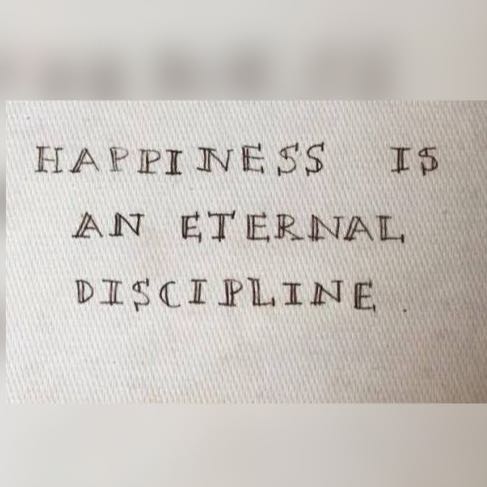 HAPPINESS IS
AN ETERNAL
DISCIPLINE.